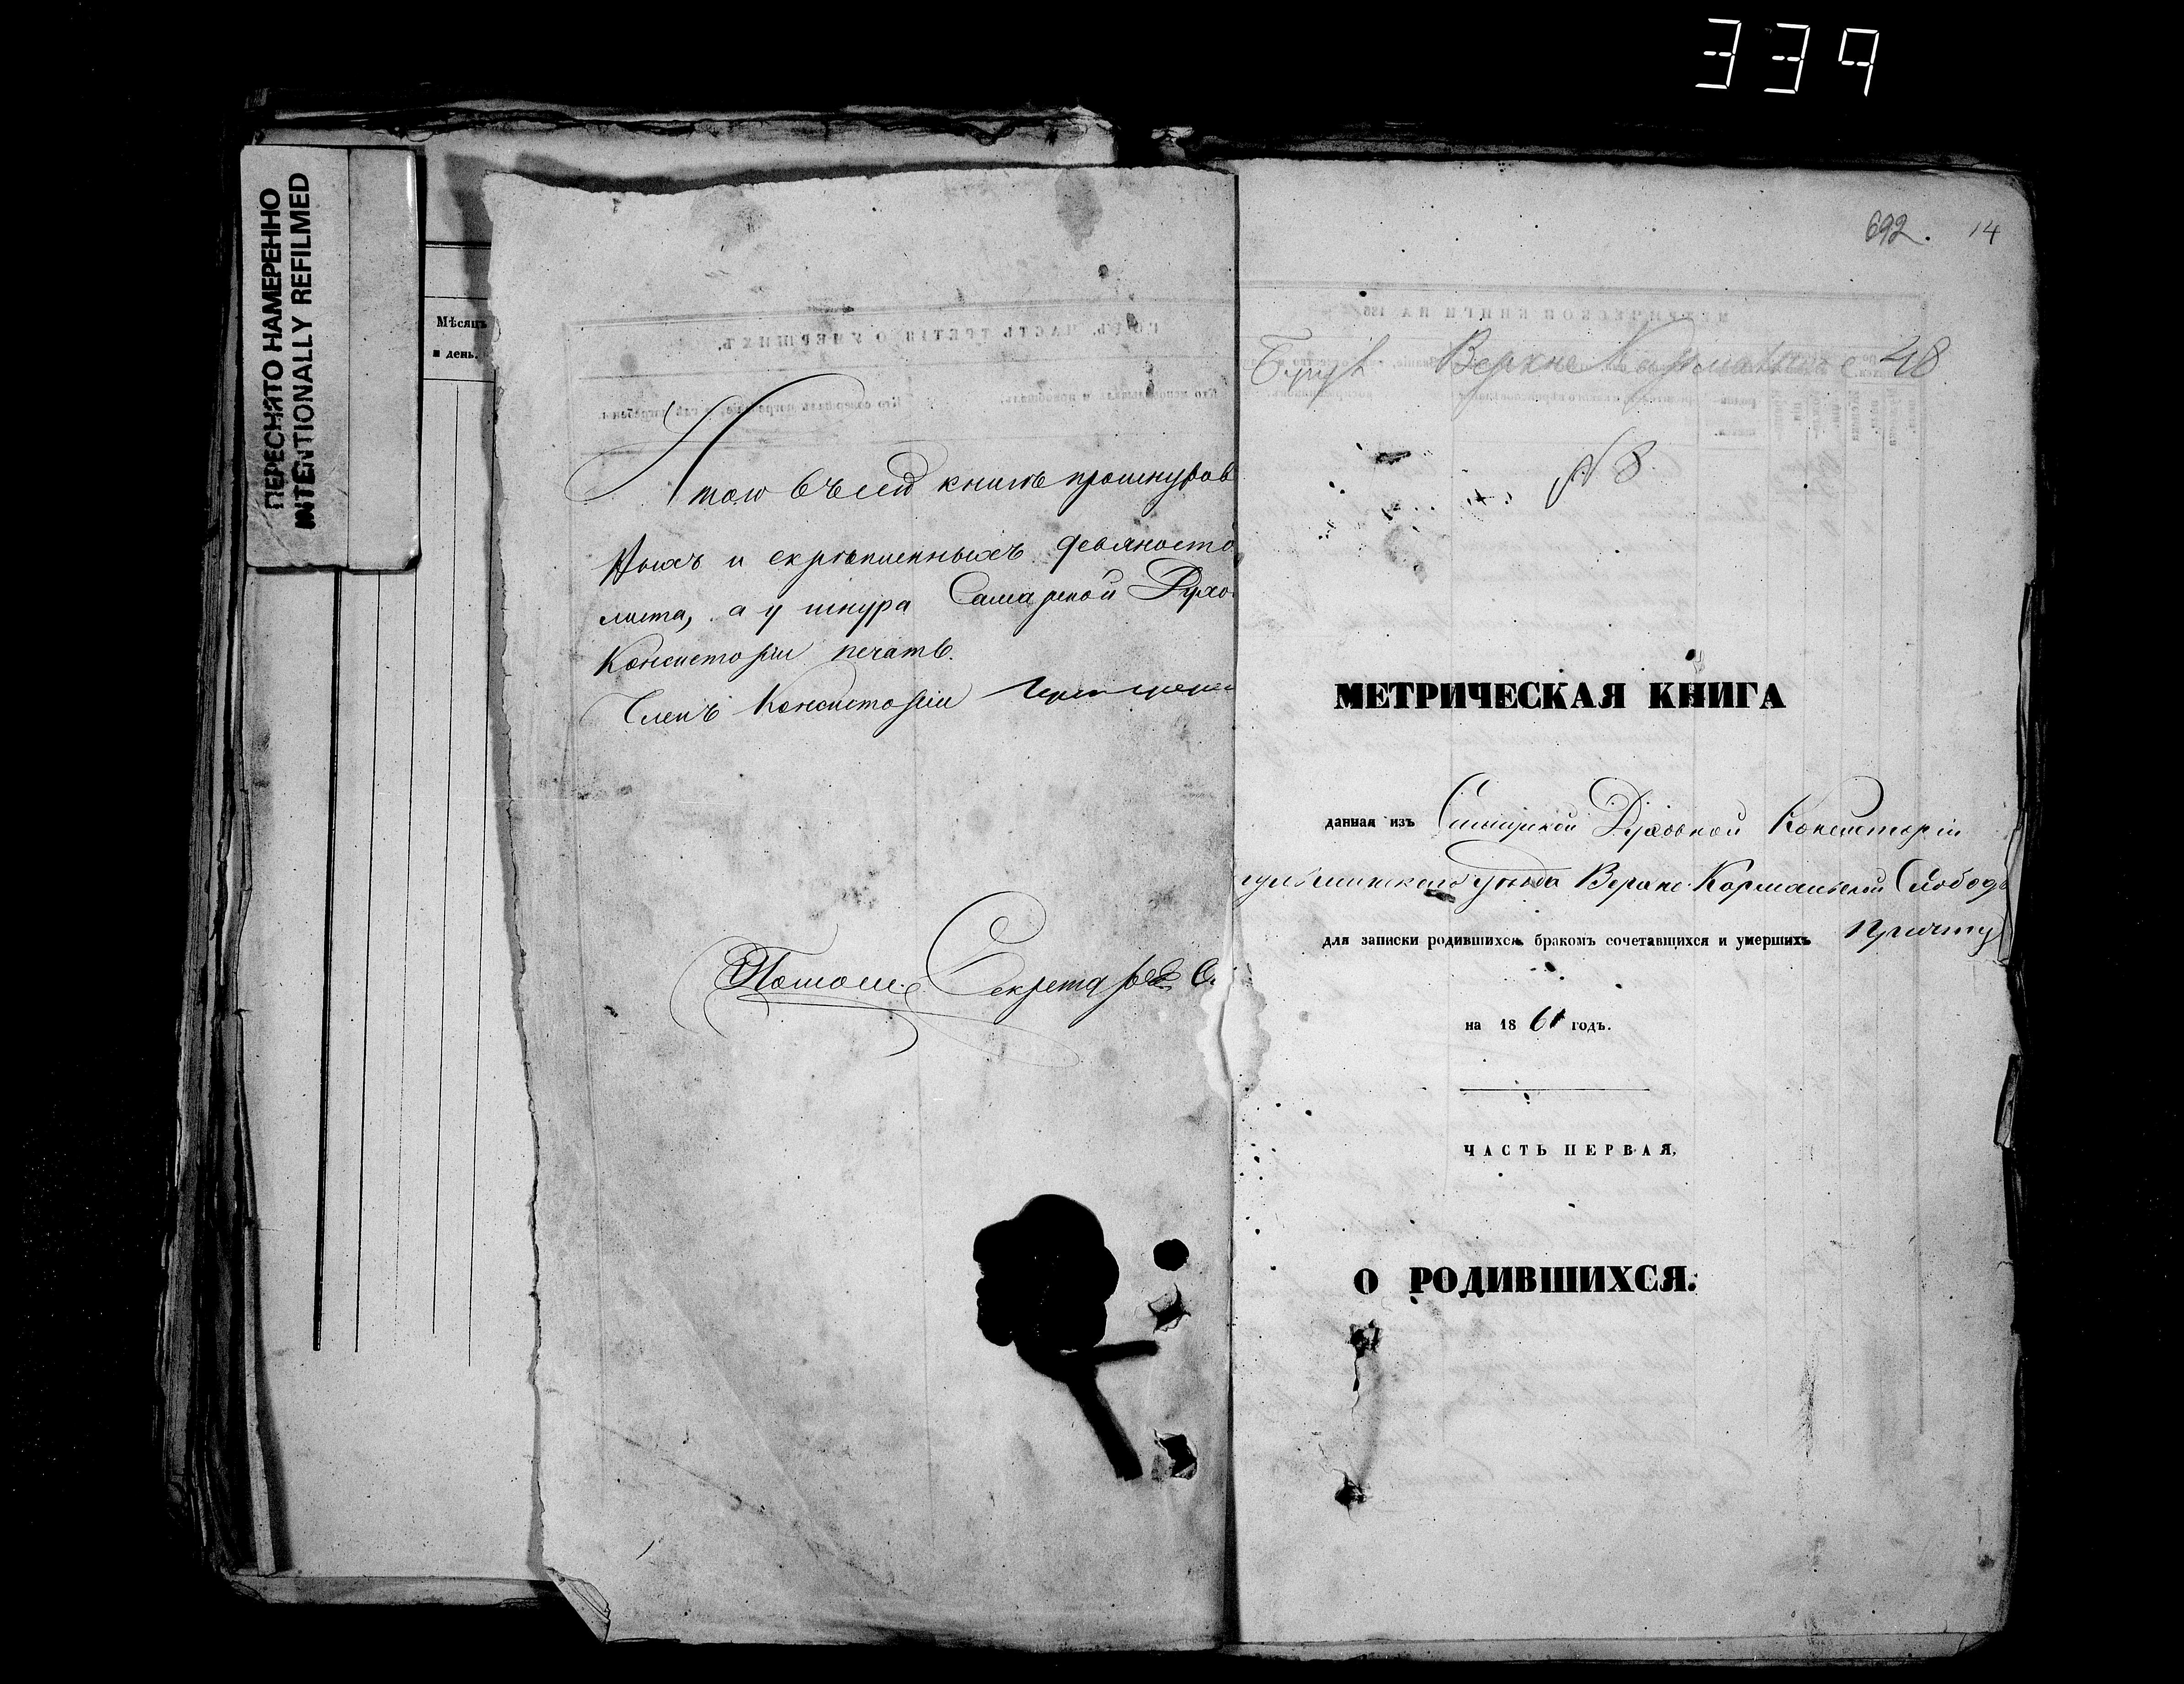 339
ПЕРЕСНЯТО НАМЕРЕННО
INTENTIONALLY REFILMED
Мѣсяцъ
и день.
Итого въ сей книгѣ прошнуров
ныхъ и скрѣпленныхъ девяносто
листа, а у шнура Самарской Духов
Консисторіи печать.
Членъ Консисторіи
Секретарь
692. 14
Бугул Верхне Кармальск 48
№ 8.
МЕТРИЧЕСКАЯ КНИГА
данная изъ Самарской Духовной Консисторіи
гульминскаго уѣзда Верхне-Кормальской Слободы
для записки родившихся, бракомъ сочетавшихся и умершихъ причту
на 1861 годъ.
ЧАСТЬ ПЕРВАЯ,
О РОДИВШИХСЯ.